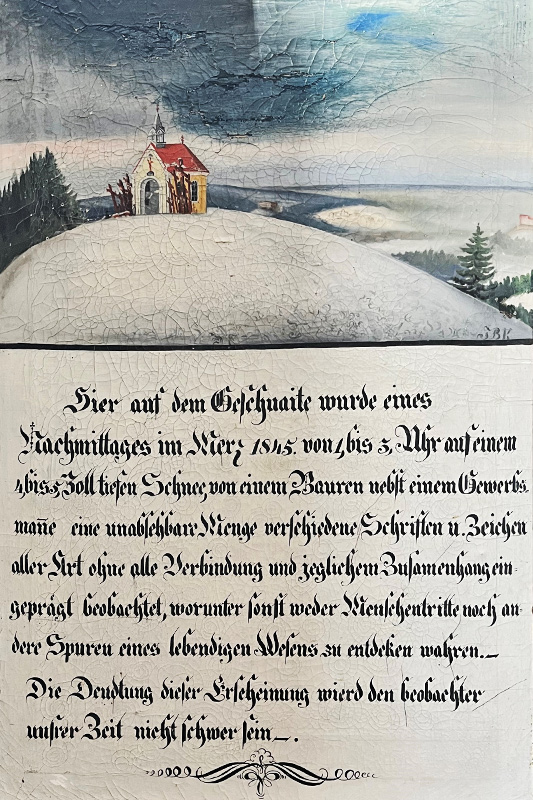 JBK
Hier auf dem Geschnaite wurde eines
Nachmittages im Merz 1845 von 4 bis 5 Uhr auf einem
4 bis 5 Zoll tiefen Schnee, von einem Bauren nebst einem Gewerbs
mañe eine unabsehbare Menge verschiedene Schriften u. Zeichen
aller Art ohne alle Verbindung und jeglichem Zusamenhang ein-
geprägt beobachtet, worunter sonst weder Menschentritte noch an-
dere Spuren eines lebendigen Wesens zu entdeken wahren._
Die Deudtung dieser Erscheinung wierd den beobachter
unsrer Zeit nicht schwer sein_.